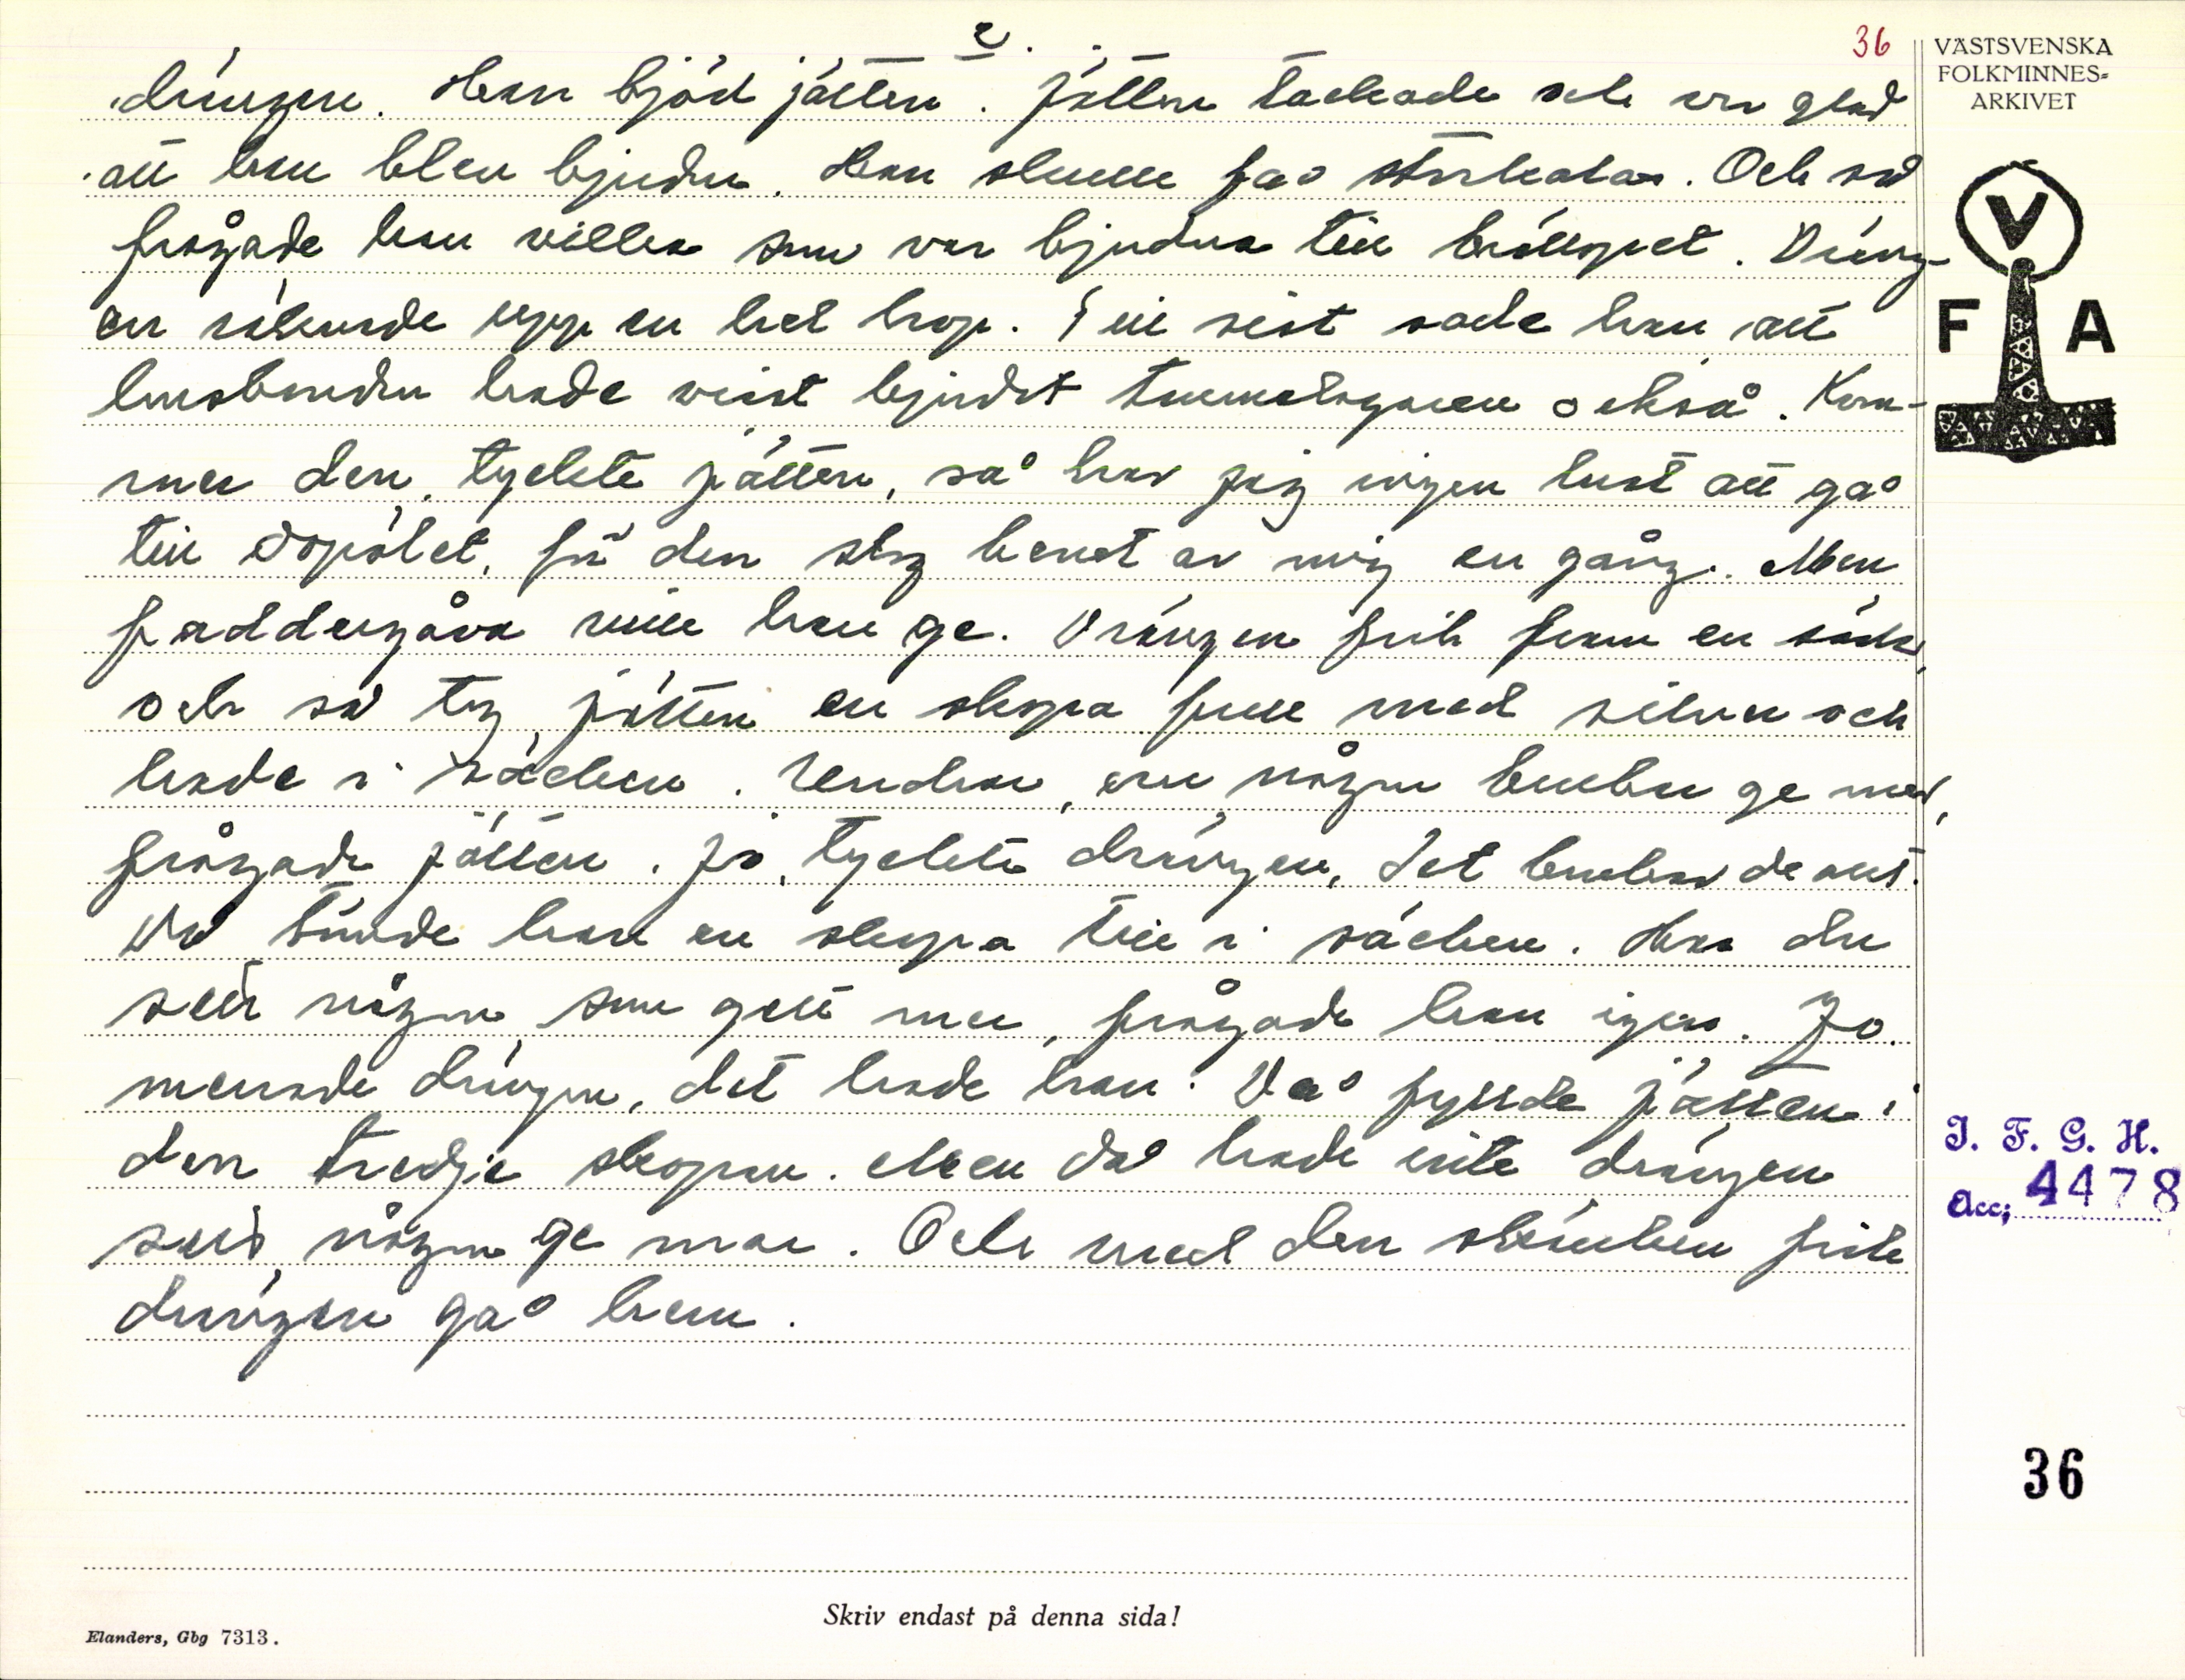 2.
36
drängen. Han bjöd jätten. Jätten tackade och var glad
att han blev bjuden. Han skulle få storkalas. Och så
frågade han vilka som var bjudna till bröllopet. Dräng-
en räknade upp en hel hop. Till sist sade han att
husbonden hade visst bjudit tummelagauen också. Kom-
mer den, tyckte jätten, så har jag ingen lust att gå
till dopölet, för den slog benet av mig en gång. Men
faddergåva ville han ge. Drängen fick fram en säck,
och så tog jätten en skopa full med silver och
hade i säcken. Undrar, om någon brukar ge mer,
frågade jätten. Jo, tyckte drängen, det brukar de allt.
Då hade han en skopa till i säcken. Har du
sett någon som gett mer, frågade han igen. Jo
menade drängen, det hade han. Då fyllde jätten i
den tredje skopan. Men då hade inte drängen
sett någon ge mer. Och med den skänken fick
drängen gå hem.
VÄSTSVENSKA
FOLKMINNES-
ARKIVET
V
F A
I. F. G. H.
Acc; 4478
36
Skriv endast på denna sida!
Elanders, Gbg 7313.